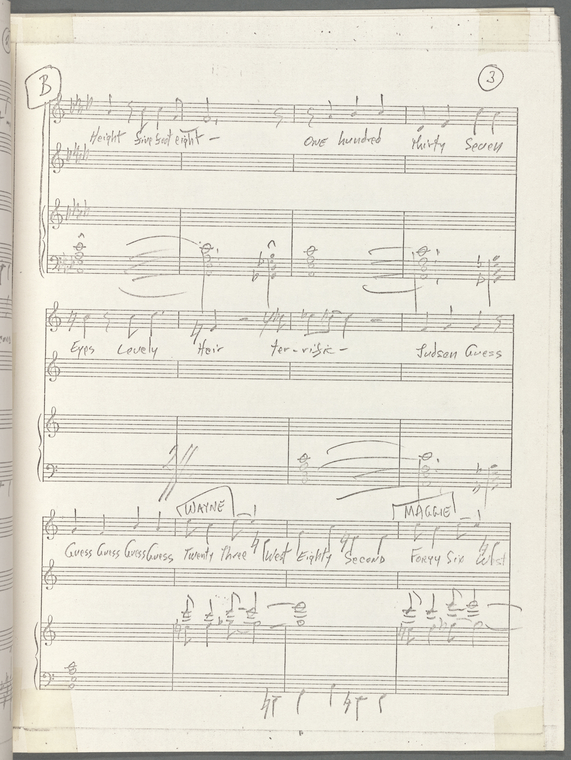 B
3
Height five foot eight — one hundred thirty seven
Eyes Lovely Hair ter-rific — Judson Guess
WAYNE MAGGIE
Guess Guess Guess Guess Twenty Three West Eighty Second Forty Six West